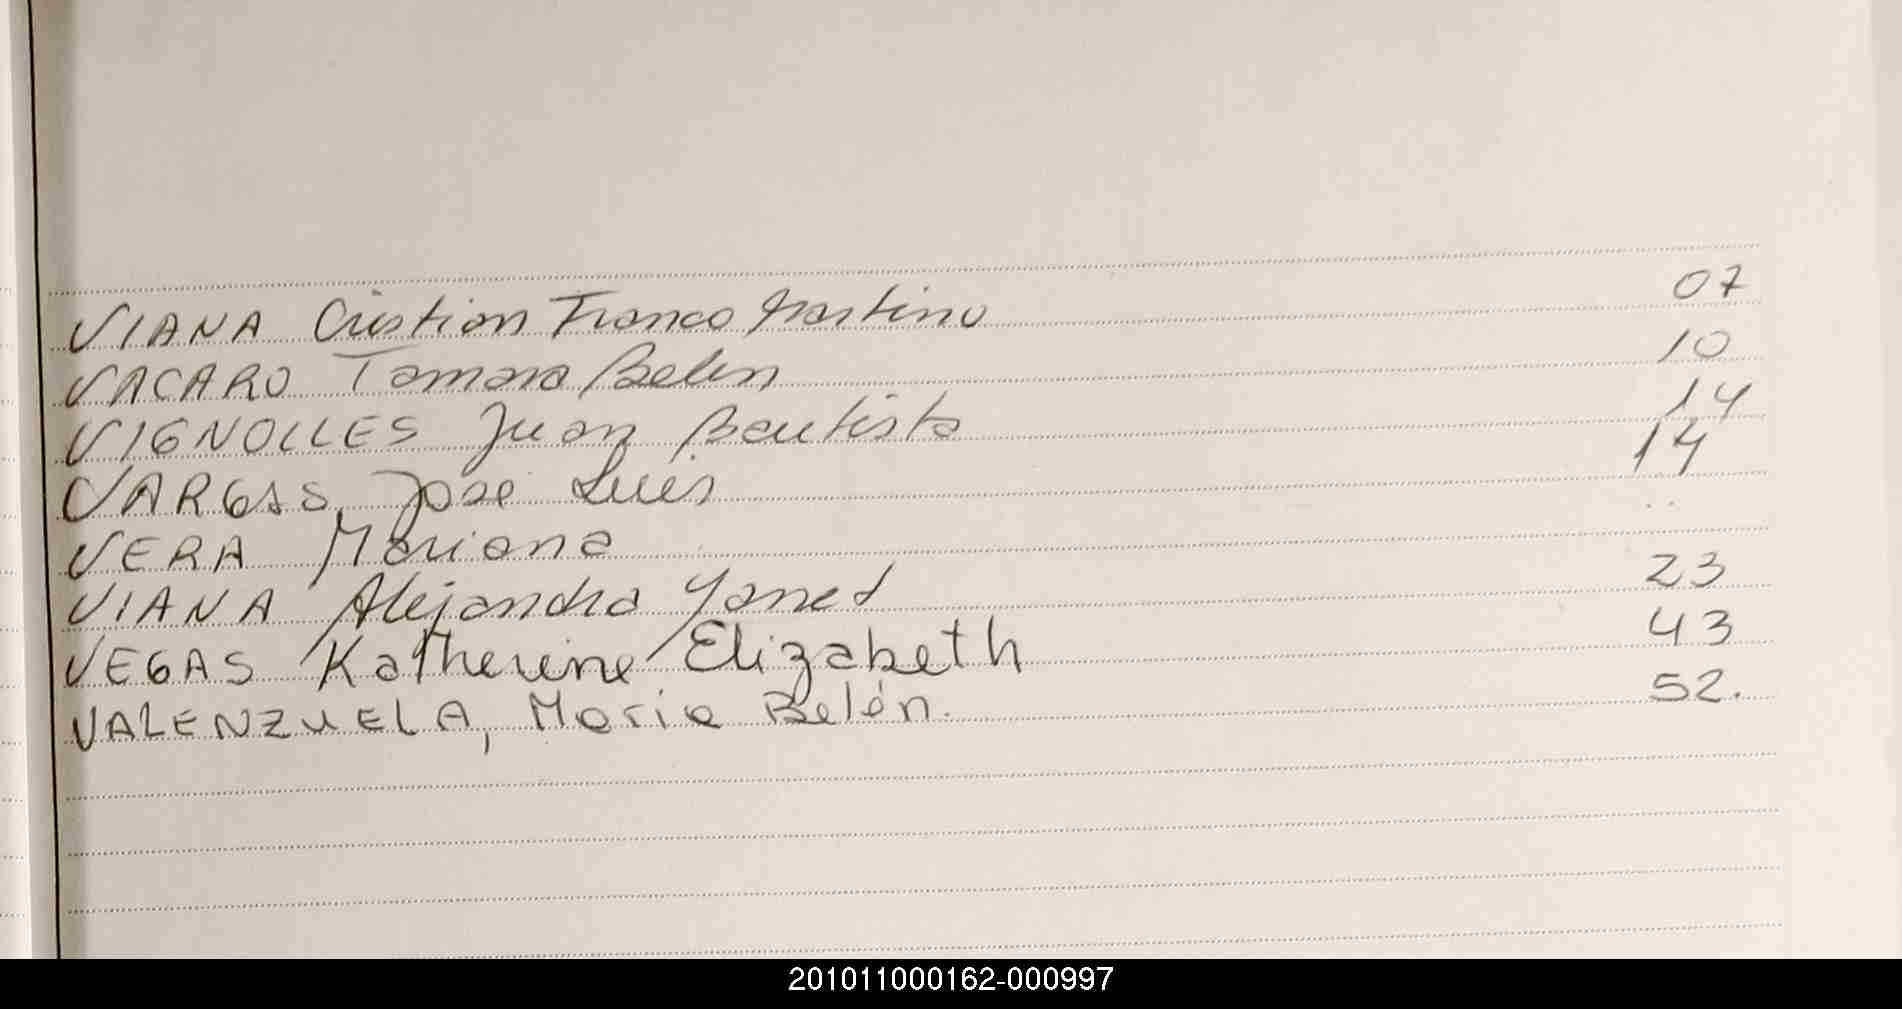 VIANA Cristian Franco Martino 07
VACARO Tamara Belen 10
VIGNOLLES Juan Bautista 14
VARGAS, Jose Luis 14
VERA Mariana ..
VIANA Alejandra Yanet 23
VEGAS Katherine Elizabeth 43
VALENZUELA, Maria Belén. 52.
201011000162-000997